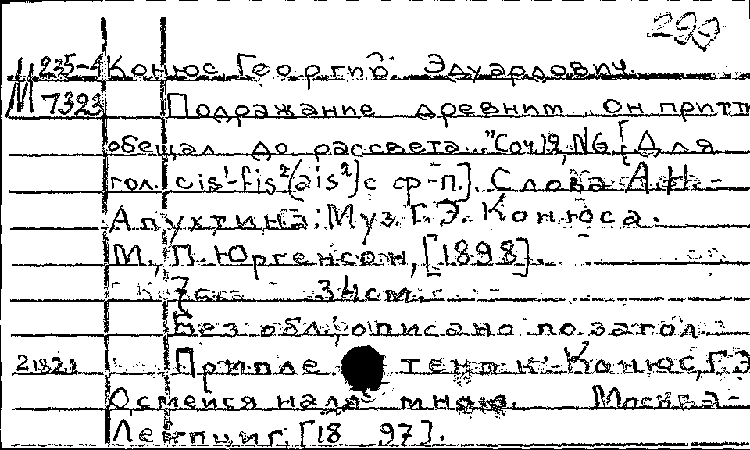 299
Ц 235-4 Конюс Георгий Эдуардович.
М 7323 Подражание древним "Он прити
обещал до рассвета..." Соч 19, N 6. [Для
гол. cis¹-fis²(ais²) с ф-п.]. Слова А.Н.
Апухтина. Муз. Г.Э. Конюса.
М., П. Юргенсон, [1898].
7 34 см.
Без обл., описано по загол.
Припле тен к: Конюс, Г.Э
Осмейся надо мною. Москва-
Лейпциг. [18 97].